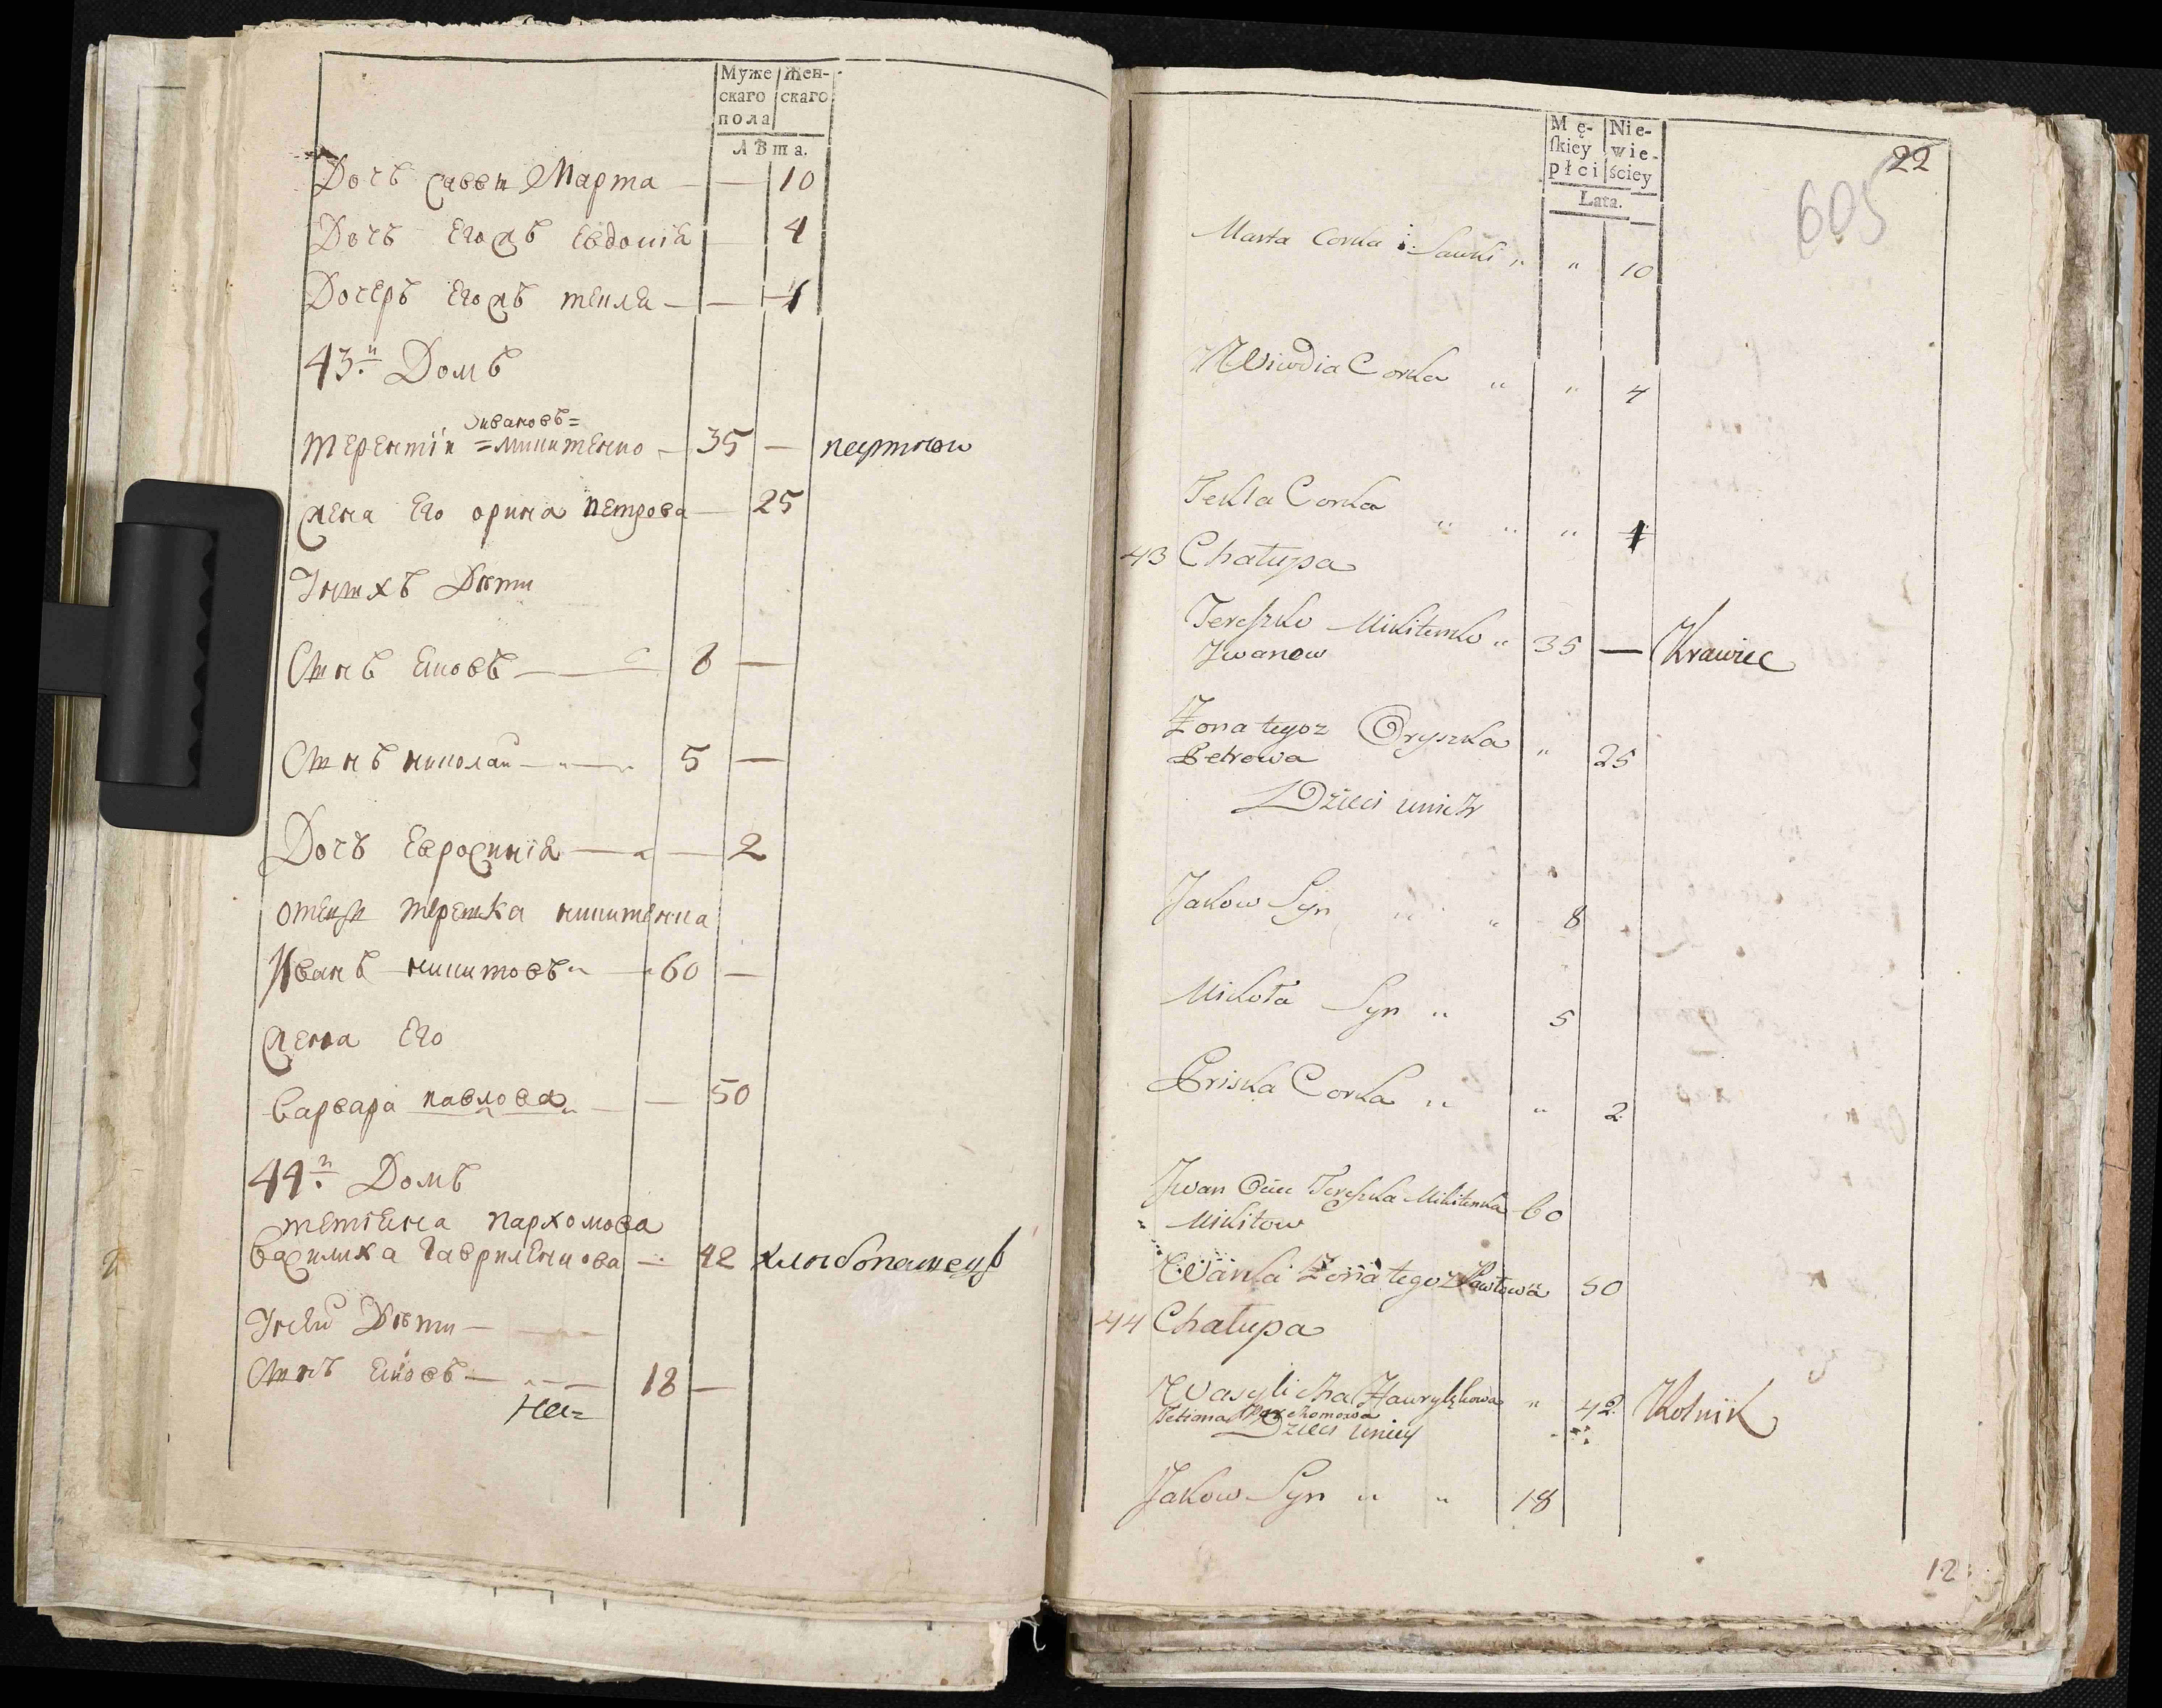 Муже Жен-
скаго скаго
пола
Лѣта.
Дочь Саввы Марта — — 10
Дочь Егожъ Евдокія — 4
Дочеръ Егожъ текля — — 1
43.й Домъ
Ивановъ=
терентіи =микитенко — 35 —
жена Его орина петрова — 25
Унихъ Дѣти
Сынъ Яковъ — 8 —
Сынъ николаи — 5 —
Дочъ Евросинія — — 2
отецъ терешка никитенка
Иванъ никитовъ — 60 —
жена Его
варвара павлова — — 50
44.й Домъ
тетіена пархомова
василиха Гавриленкова — 42 хлѣбопашецъ
Унеи Дѣти —
Сынъ Яковъ — 18 —
На=
Mę- Nie-
ſkiey wie-
płci ściey
Lata.
22
605
Marta Corka Sawki " " 10
Wiwdia Corka " " 4
Tekla Corka " " " 1
43 Chałupa
Tereszko Mikitenko " 35 — Krawiec
Iwanow
Żona tegoz Oryszka " 25
Petrowa
Dzieci unich
Jakow Syn " " 8
Mikoła Syn " 5
Priska Corka " " 2
Iwan Ociec Tereszka Mikitenka 60
Mikitow
Warka Żona tegoz Pawłowa 50
44 Chałupa
Wasylicha Hawrylkowa " 42 Rolnik
Tetiana Parchomowa
Dzieci uniey
Jakow Syn " " 18
12